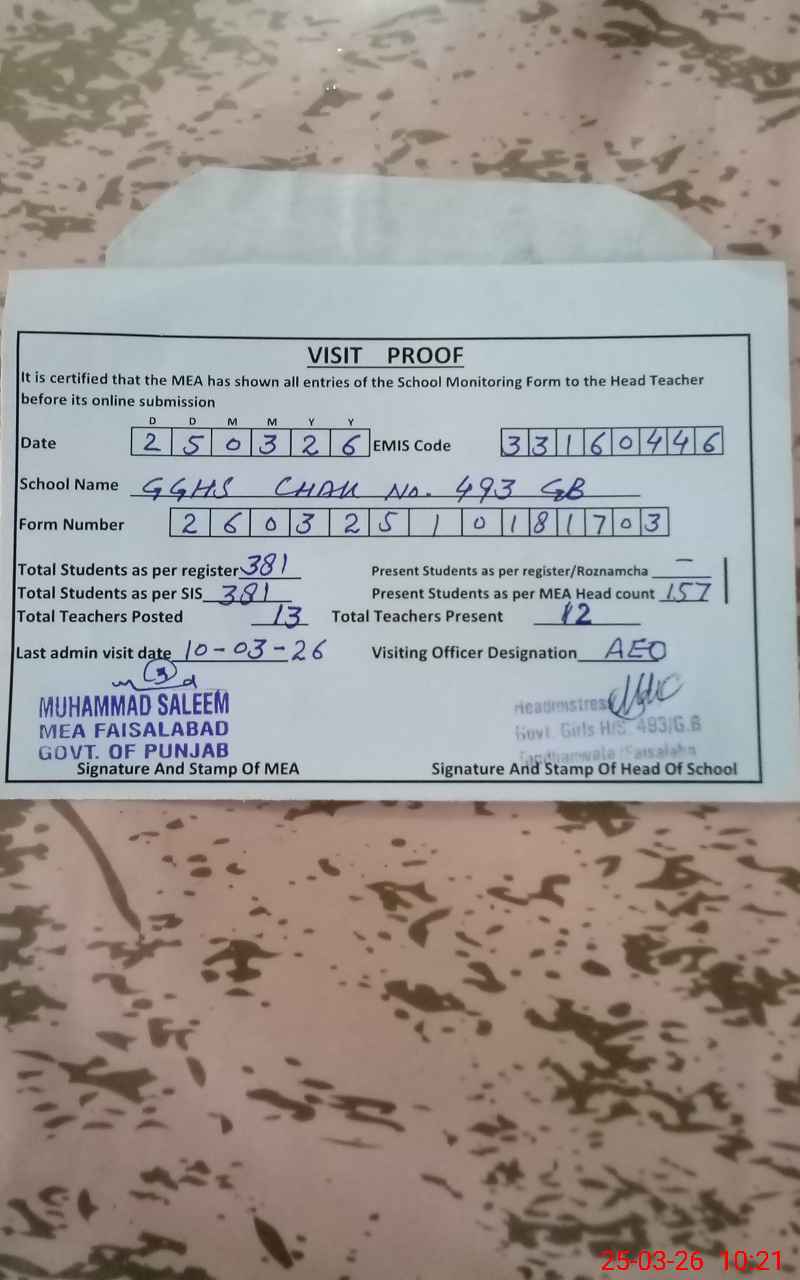 VISIT PROOF
It is certified that the MEA has shown all entries of the School Monitoring Form to the Head Teacher
before its online submission
D D M M Y Y
Date 2 5 0 3 2 6 EMIS Code 3 3 1 6 0 4 4 6
School Name GGHS CHAK No. 493 GB
Form Number 2 6 0 3 2 5 1 0 1 8 1 7 0 3
Total Students as per register 381 Present Students as per register/Roznamcha —
Total Students as per SIS 381 Present Students as per MEA Head count 157
Total Teachers Posted 13 Total Teachers Present 12
Last admin visit date 10-03-26 Visiting Officer Designation AEO
MUHAMMAD SALEEM
MEA FAISALABAD
GOVT. OF PUNJAB
Headmistress
Govt. Girls H/S. 493/G.B
Signature And Stamp Of MEA Signature And Stamp Of Head Of School
25-03-26 10:21